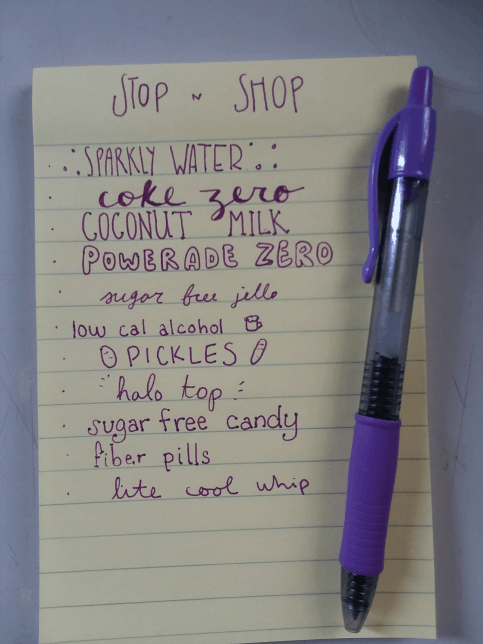 STOP ~ SHOP
SPARKLY WATER
coke zero
COCONUT MILK
POWERADE ZERO
sugar free jello
low cal alcohol
PICKLES
halo top
sugar free candy
fiber pills
lite cool whip